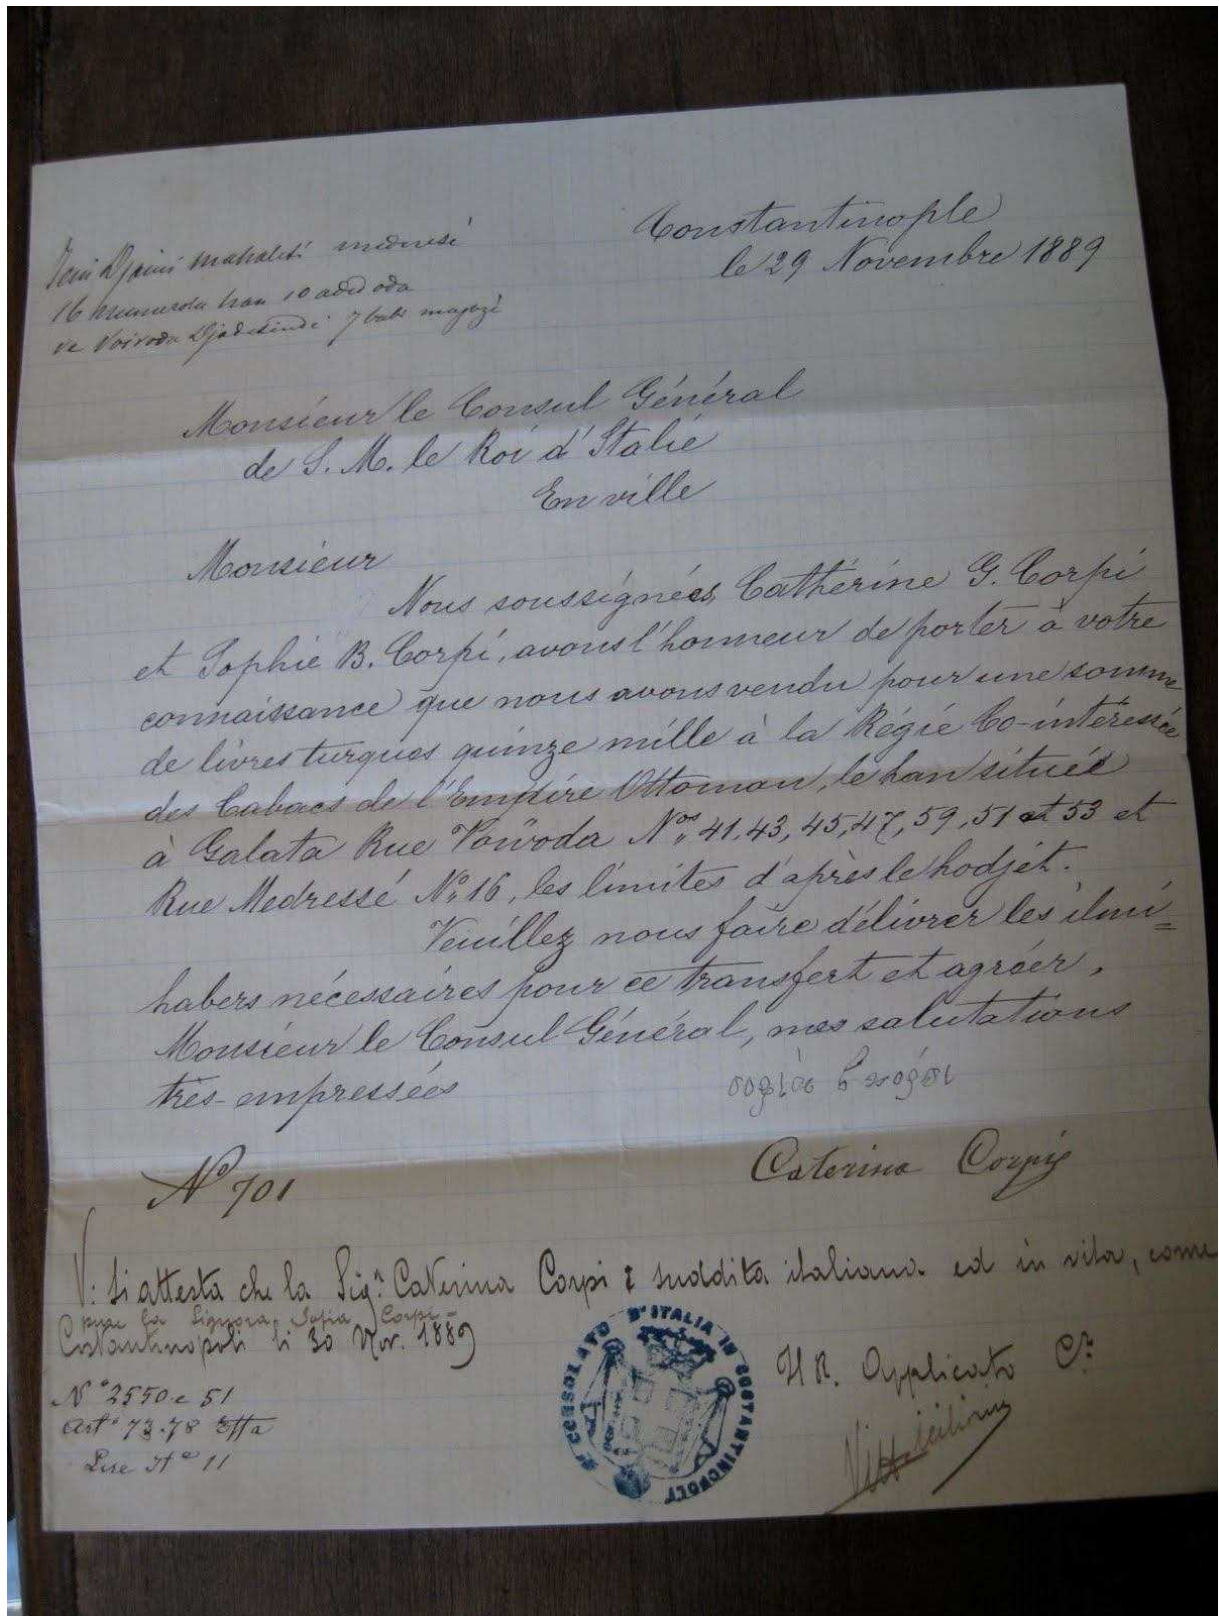 Constantinople
le 29 Novembre 1889
Jeni Djami mahalesi
16 numerolu han 10 aded oda
ve Voivoda Djadesinde 7 bab magazi
Monsieur le Consul Général
de S. M. le Roi d'Italie
En ville
Monsieur
Nous soussignées, Cathérine G. Corpi
et Sophie B. Corpi, avons l'honneur de porter à votre
connaissance que nous avons vendu pour une somme
de livres turques quinze mille à la Régie Co-intéressée
des Tabacs de l'Empire Ottoman, le han située
à Galata Rue Voïvoda Nos 41, 43, 45, 47, 59, 51 et 53 et
Rue Medressé No 16, les limites d'après le hodjet.
Veuillez nous faire délivrer les ilmi=
habers nécessaires pour ce transfert et agréer,
Monsieur le Consul Général, mes salutations
très-empressées
No 701
Caterina Corpi
V: Si attesta che la Sig.ra Caterina Corpi è suddita italiana ed in vita, come
pure la Signora Sofia Corpi =
Costantinopoli li 30 Nov. 1889
No 2550 e 51
Arto 73.78 Tffa
Lire It e 11
Il R. Applicato
Ro CONSOLATO D'ITALIA IN COSTANTINOPOLI